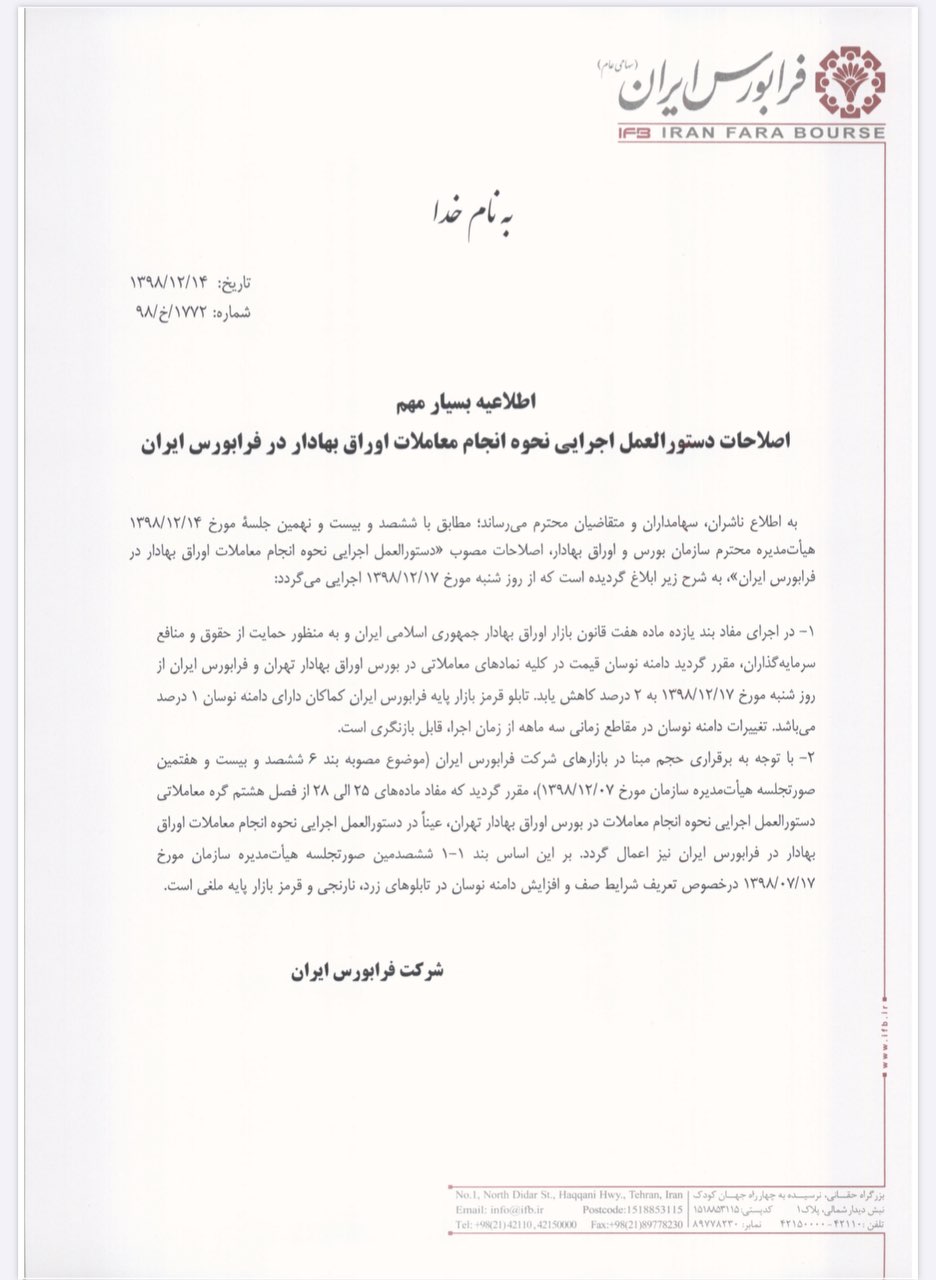 فرابورس ایران (سهامی عام)
IFB IRAN FARA BOURSE
به نام خدا
تاریخ: ۱۳۹۸/۱۲/۱۴
شماره: ۱۷۷۲/خ/۹۸
اطلاعیه بسیار مهم
اصلاحات دستورالعمل اجرایی نحوه انجام معاملات اوراق بهادار در فرابورس ایران
به اطلاع ناشران، سهامداران و متقاضیان محترم می‌رساند؛ مطابق با ششصد و بیست و نهمین جلسۀ مورخ ۱۳۹۸/۱۲/۱۴
هیأت‌مدیره محترم سازمان بورس و اوراق بهادار، اصلاحات مصوب «دستورالعمل اجرایی نحوه انجام معاملات اوراق بهادار در
فرابورس ایران»، به شرح زیر ابلاغ گردیده است که از روز شنبه مورخ ۱۳۹۸/۱۲/۱۷ اجرایی می‌گردد:
۱- در اجرای مفاد بند یازده ماده هفت قانون بازار اوراق بهادار جمهوری اسلامی ایران و به منظور حمایت از حقوق و منافع
سرمایه‌گذاران، مقرر گردید دامنه نوسان قیمت در کلیه نمادهای معاملاتی در بورس اوراق بهادار تهران و فرابورس ایران از
روز شنبه مورخ ۱۳۹۸/۱۲/۱۷ به ۲ درصد کاهش یابد. تابلو قرمز بازار پایه فرابورس ایران کماکان دارای دامنه نوسان ۱ درصد
می‌باشد. تغییرات دامنه نوسان در مقاطع زمانی سه ماهه از زمان اجرا، قابل بازنگری است.
۲- با توجه به برقراری حجم مبنا در بازارهای شرکت فرابورس ایران (موضوع مصوبه بند ۶ ششصد و بیست و هفتمین
صورتجلسه هیأت‌مدیره سازمان مورخ ۱۳۹۸/۱۲/۰۷)، مقرر گردید که مفاد ماده‌های ۲۵ الی ۲۸ از فصل هشتم گره معاملاتی
دستورالعمل اجرایی نحوه انجام معاملات در بورس اوراق بهادار تهران، عیناً در دستورالعمل اجرایی نحوه انجام معاملات اوراق
بهادار در فرابورس ایران نیز اعمال گردد. بر این اساس بند ۱-۱ ششصدمین صورتجلسه هیأت‌مدیره سازمان مورخ
۱۳۹۸/۰۷/۱۷ درخصوص تعریف شرایط صف و افزایش دامنه نوسان در تابلوهای زرد، نارنجی و قرمز بازار پایه ملغی است.
شرکت فرابورس ایران
www.ifb.ir
بزرگراه حقـانی، نرسیـده به چهارراه جهـان کودک
نبش دیدار شمالی، پلاک۱ کدپستی: ۱۵۱۸۸۵۳۱۱۵
تلفن: ۴۲۱۱۰ - ۴۲۱۵۰۰۰۰ نمابر: ۸۹۷۷۸۲۳۰
No.1, North Didar St., Haqqani Hwy., Tehran, Iran
Email: info@ifb.ir Postcode:1518853115
Tel: +98(21) 42110 , 42150000 Fax:+98(21)89778230